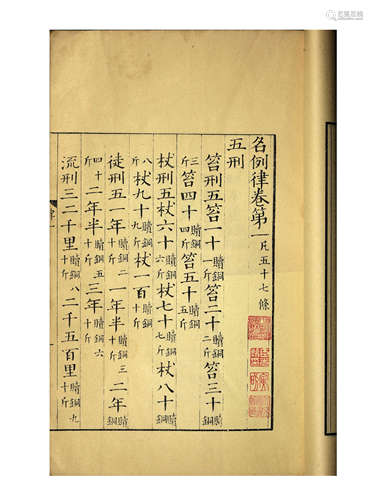 名例律卷第一 凡五十七條
五刑
笞刑五笞一十贖銅一斤笞二十贖銅二斤笞三十贖銅
三斤笞四十贖銅四斤笞五十贖銅五斤
杖刑五杖六十贖銅六斤杖七十贖銅七斤杖八十贖銅
八斤杖九十贖銅九斤杖一百贖銅十斤
徒刑五一年贖銅二十斤一年半贖銅三十斤二年贖銅
四十斤二年半贖銅五十斤三年贖銅六十斤
流刑三二千里贖銅八十斤二千五百里贖銅九十斤
律一